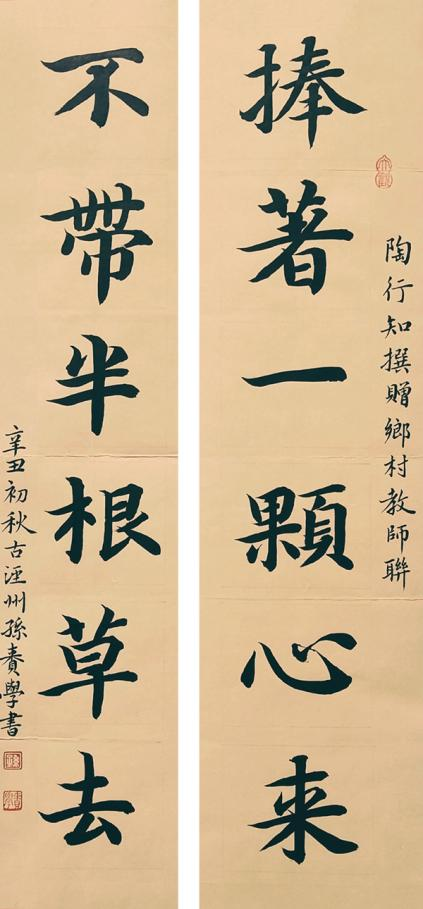 陶行知撰贈鄉村教師聯
捧著一顆心来
不帶半根草去
辛丑初秋古涇州孫學書